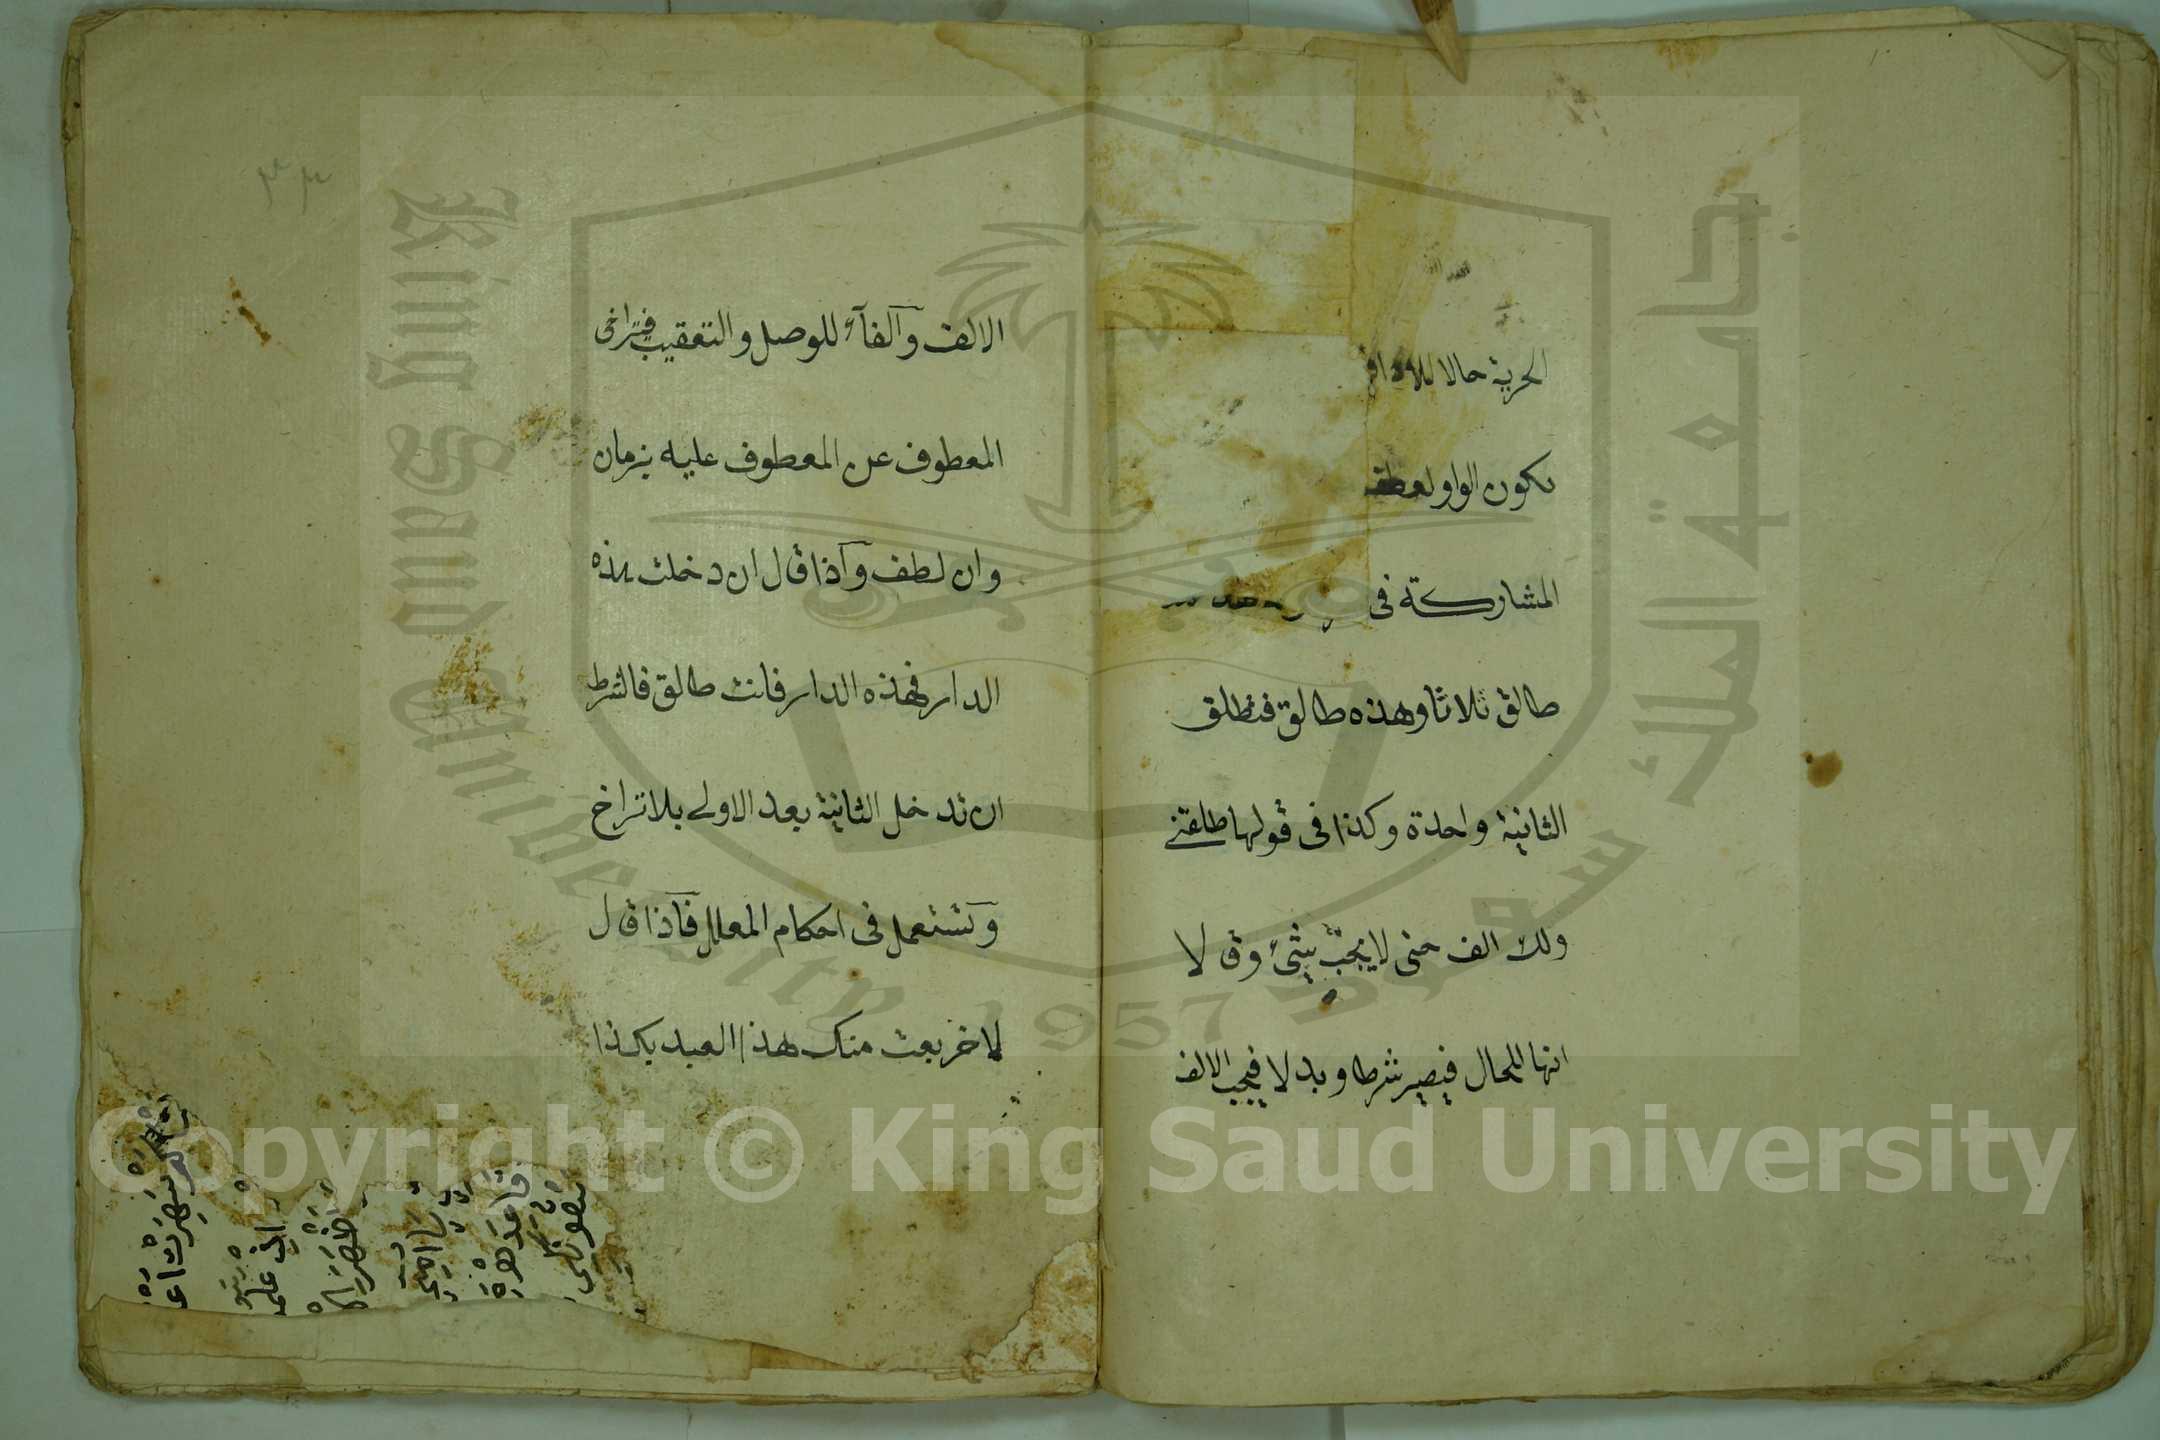 الحرية حالا للاداء
تكون الواو لعطف
المشاركة فى
طالق ثلاثا وهذه طالق فتطلق
الثانية واحدة وكذا فى قولها طلقنى
ولك الف حتى لا يجب شئ وقالا
انها للحال فيصير شرطا وبدلا فيجب الالف
٣٣
الالف والفاء للوصل والتعقيب فيتراخى
المعطوف عن المعطوف عليه بزمان
وان لطف واذا قال ان دخلت هذه
الدار فهذه الدار فانت طالق فالشرط
ان تدخل الثانية بعد الاولى بلا تراخ
وتستعمل فى احكام العلل فاذا قال
لاخر بعت منك هذا العبد بكذا
King Saud University
جامعة الملك سعود
1957
Copyright © King Saud University